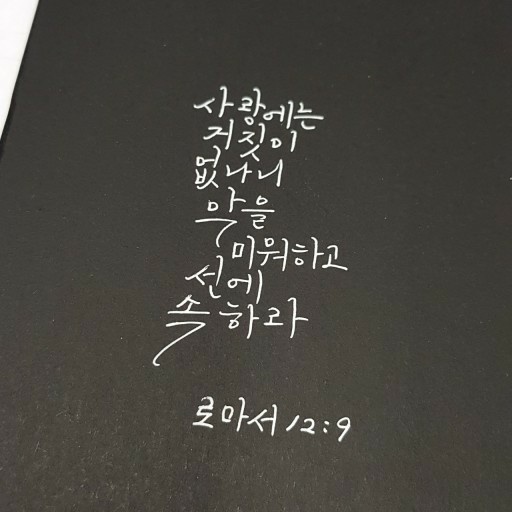 사랑에는
거짓이
없나니
악을
미워하고
선에
속하라
로마서 12:9